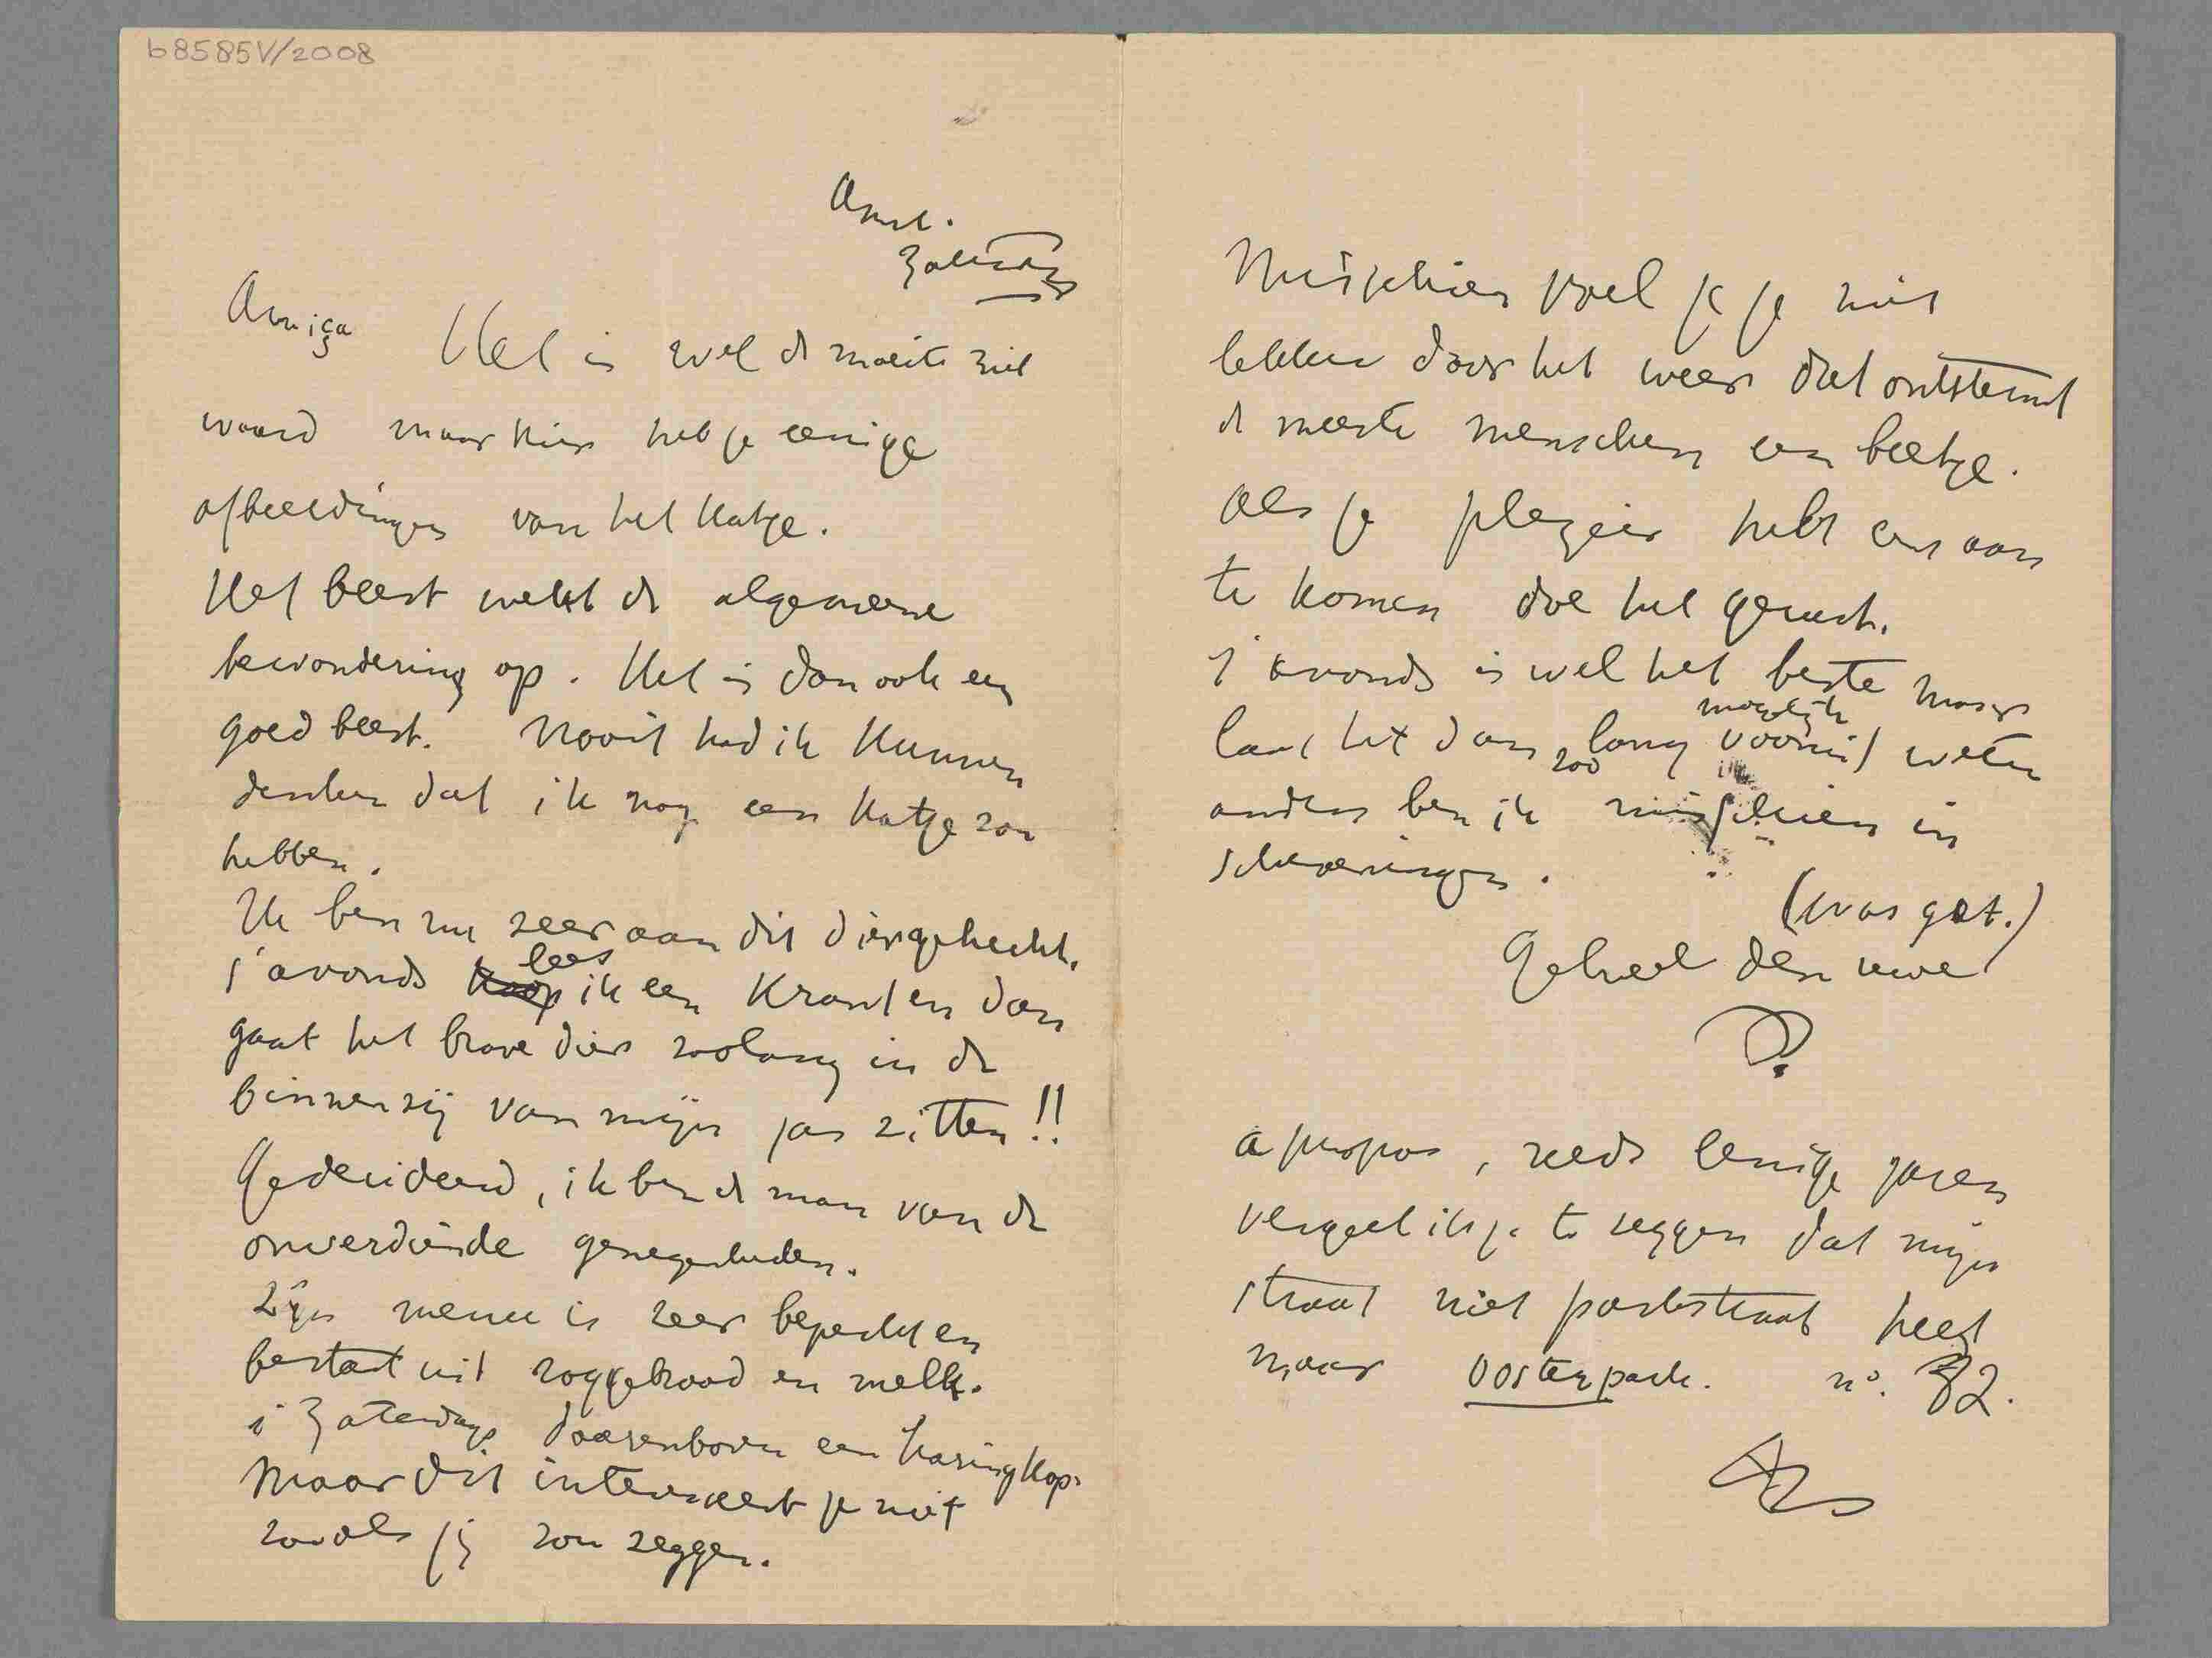 b8585V/2008
Amst.
Zaterdag
Amiga Het is wel de moeite niet
waard maar hier heb je eenige
afbeeldingen van het katje.
Het beest wekt de algemeene
bewondering op. Het is dan ook een
goed beest. Nooit had ik kunnen
denken dat ik nog een katje zou
hebben.
Ik ben nu zeer aan dit dier gehecht.
s'avonds koop lees ik een krant en dan
gaat het brave dier zoolang in de
binnenzij van mijn jas zitten!!
Gedecideerd, ik ben de man van de
onverdiende genegenheden.
Zijn menu is zeer beperkt en
bestaat uit roggebrood en melk.
s'Zaterdags daarenboven een haringkop.
Maar dit interesseert je niet
zooals jij zou zeggen.
Misschien voel je je niet
lekker door het weer dat ontstemt
de meeste menschen een beetje.
Als je plezier hebt eens aan
te komen doe het gerust.
s'avonds is wel het beste maar
laat het dan zoo lang mogelijk vooruit weten
anders ben ik misschien in
Scheveningen.
(was get.)
Geheel den uwe
à propos, reeds eenige jaren
vergeet ik je te zeggen dat mijn
straat niet parkstraat heet
maar Oosterpark. no. 82.